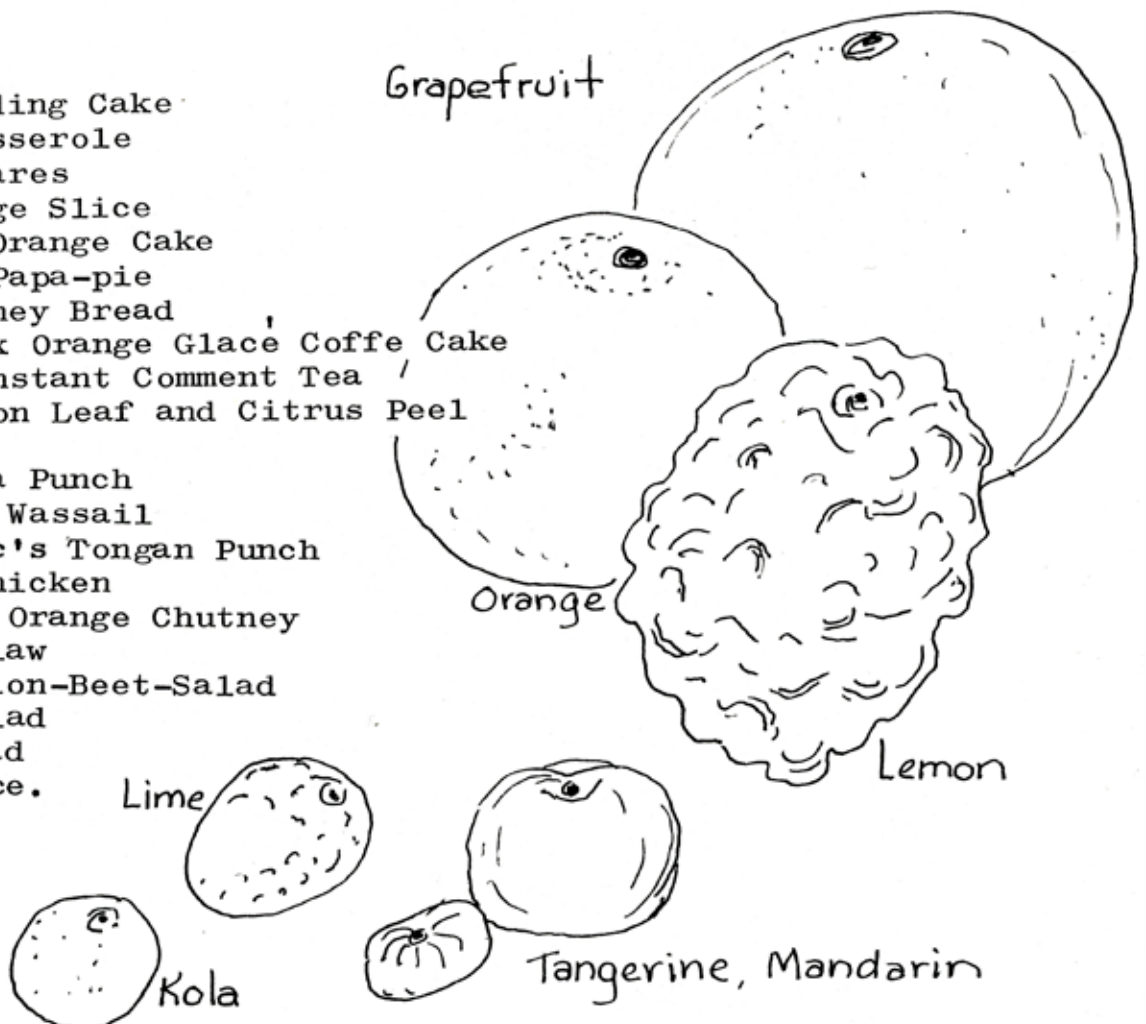 Grapefruit
ling Cake
sserole
ares
ge Slice
Orange Cake
Papa-pie
ney Bread
k Orange Glacé Coffe Cake
nstant Comment Tea
on Leaf and Citrus Peel
a Punch
Wassail
c's Tongan Punch
hicken
Orange Chutney
law
ion-Beet-Salad
lad
ad
ce.
Orange
Lemon
Lime
Kola
Tangerine, Mandarin